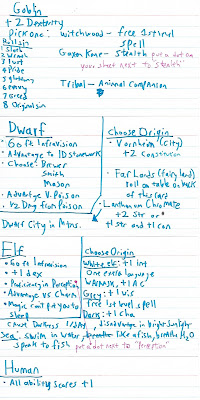 Goblin
+2 Dexterity
Pick one: witchwood - free 1st level spell
Roll sin
1 Sloth
2 Wrath
3 lust
4 Pride
5 gluttony
6 envy
7 Greed
8 Original sin
stealth put a dot on your sheet next to "stealth"
Tribal - Animal Companion
Dwarf
• 60 ft Infravision
• Advantage to ID Stonework
• Choose: Brewer
Smith
Mason
• Advantage V. Poison
• 1/2 Dmg from Poison
Dwarf City in Mtns.
Choose Origin
• Vornheim (City)
+2 Constitution
• Far Lands (fairy land)
roll on table on back of this card
Chromate
+2 Str or
+1 str and +1 con
Elf
• 60 ft Infravision
• +1 dex
• Proficiency in Perception
• Advantage vs Charm
• Magic can't put you to sleep
Choose Origin
White elf: +1 int
One extra language
+1 AC
Grey: +1 wis
Free 1st level spell
Dark: +1 Cha
cause Darkness 1/DAY, disadvantage in bright sunlight
Sea: swim in water, breathe like a fish, breathe H2O
speak to fish put a dot next to "Perception"
Human
• All ability scores +1